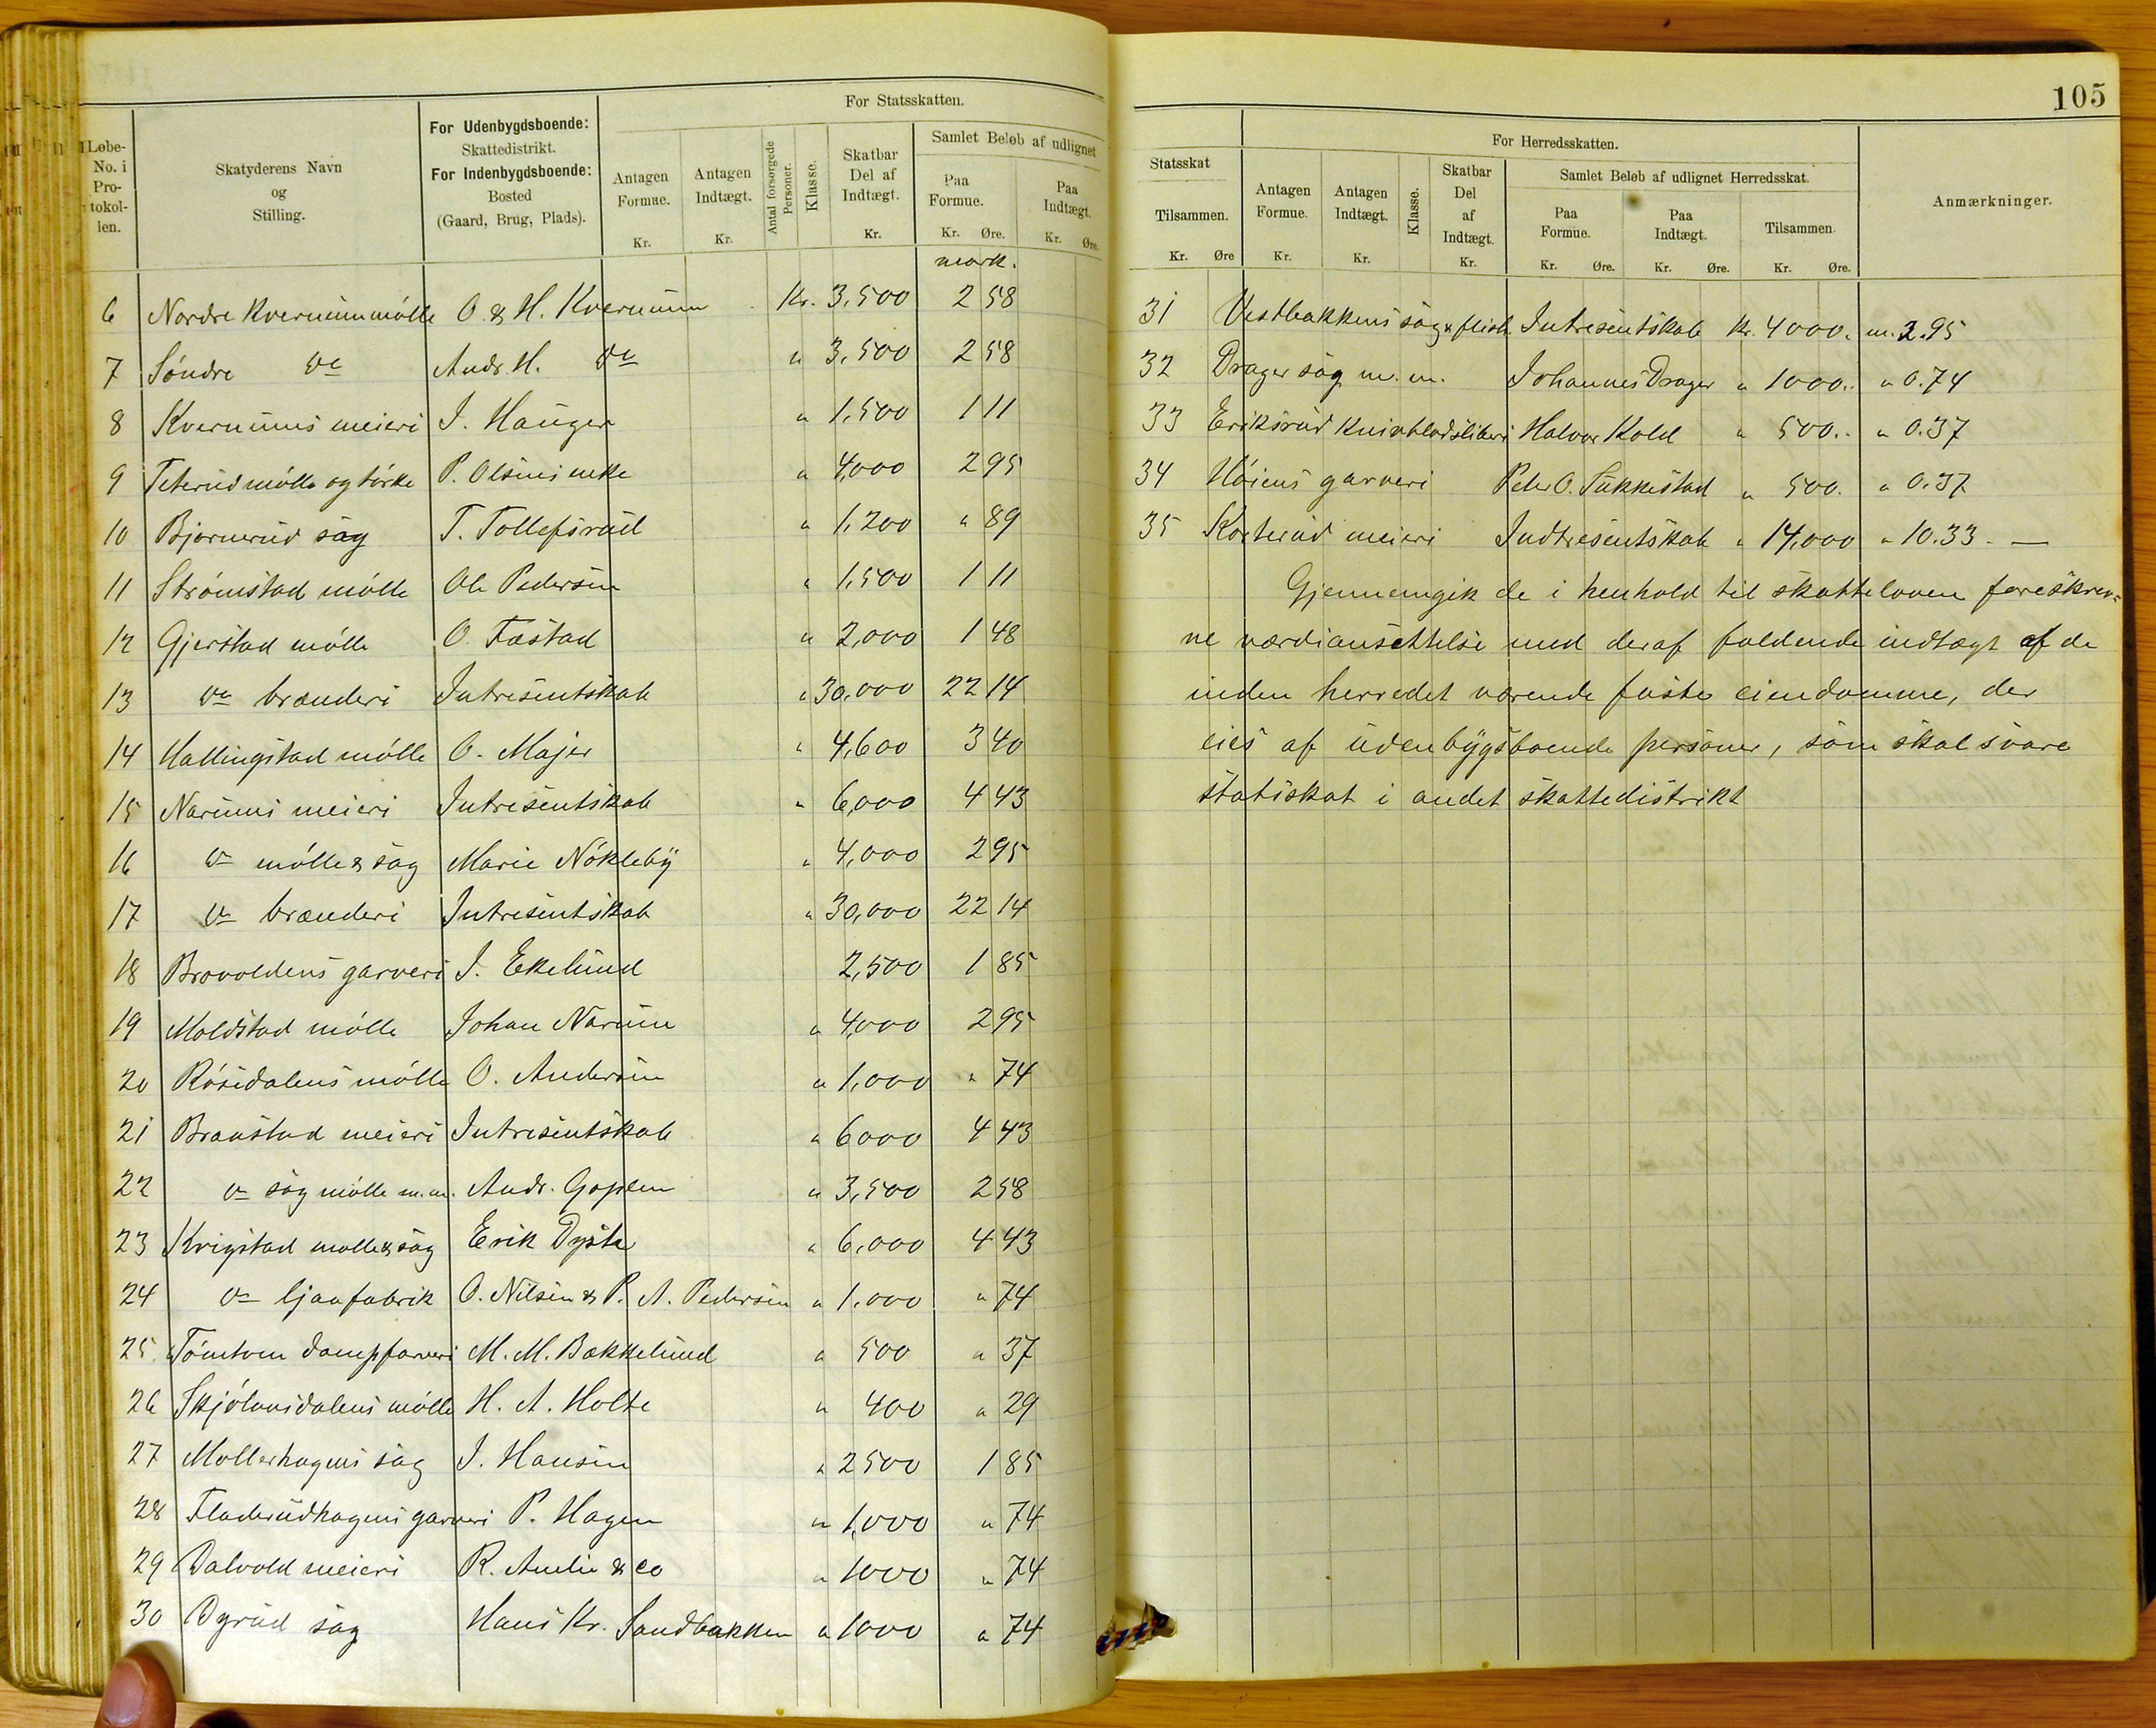 105
Løbe-No. i Protokollen.
Skatyderens Navn og Stilling.
For Udenbygdsboende: Skattedistrikt. For Indenbygdsboende: Bosted (Gaard, Brug, Plads).
For Statsskatten.
Antagen Formue. Kr.
Antagen Indtægt. Kr.
Antal forsørgede Personer.
Klasse.
Skatbar Del af Indtægt. Kr.
Samlet Beløb af udlignet
Paa Formue. Kr. Øre.
Paa Indtægt. Kr. Øre.
mark.
6 Nordre Kvernummølle O. & H. Kvernum Kr. 3,500 2 58
7 Søndre do Andr. H. do " 3,500 2 58
8 Kvernums meieri J. Hauger " 1,500 1 11
9 Teterud mølle og tørke P. Olsens enke " 4,000 2 95
10 Bjørnerud sag T. Tollefsrud " 1,200 " 89
11 Strømstad mølle Ole Pedersen " 1,500 1 11
12 Gjerstad mølle O. Fæstad " 2,000 1 48
13 do brænderi Intresentskab " 30,000 22 14
14 Hallingstad mølle O. Majer " 4,600 3 40
15 Narums meieri Intresentskab " 6,000 4 43
16 do mølle & sag Marie Nøkleby " 4,000 2 95
17 do brænderi Intresentskab " 30,000 22 14
18 Brovoldens garveri J. Ekelund 2,500 1 85
19 Moldstad mølle Johan Narum " 4,000 2 95
20 Røsedalens mølle O. Andersen " 1,000 " 74
21 Braastad meieri Intresentskab " 6000 4 43
22 do sag mølle m.m. Andr. Goplen " 3,500 2 58
23 Krigstad mølle & sag Erik Dyste " 6,000 4 43
24 do ljaafabrik O. Nilsen & P. A. Pedersen " 1.000 " 74
25 Tømten dampfarveri M. M. Bakkelund " 500 " 37
26 Skjølaasdalens mølle H. A. Holte " 400 " 29
27 Mollerhagens sag J. Hansen " 2500 1 85
28 Fladerudhagens garveri P. Hagen " 1,000 " 74
29 Dalvold meieri R. Amlie & Co " 1000 " 74
30 Dyrud sag Hans Kr. Sandbakken " 1000 " 74
Statsskat
Tilsammen. Kr. Øre
For Herredsskatten.
Antagen Formue. Kr.
Antagen Indtægt. Kr.
Klasse.
Skatbar Del af Indtægt. Kr.
Samlet Beløb af udlignet Herredsskat.
Paa Formue. Kr. Øre.
Paa Indtægt. Kr. Øre.
Tilsammen. Kr. Øre.
Anmærkninger.
31 Vestbakkens sag & flish Intresentskab Kr. 4000. m. 2.95
32 Drager sag m. m. Johannes Drager " 1000.. " 0.74
33 Eriksrud knivbladsliberi Halvor Kold " 500.. " 0.37
34 Høiens garveri Peder O. Sukkestad " 500. " 0.37
35 Korterud meieri Indtresentskab " 14,000 " 10.33. —
Gjennemgik de i henhold til skatteloven foreskrev-
ne værdiansettelse med deraf faldende indtægt af de
inden herredet værende faste eiendomme, der
eies af udenbygsboende personer, som skal svare
statsskat i andet skattedistrikt